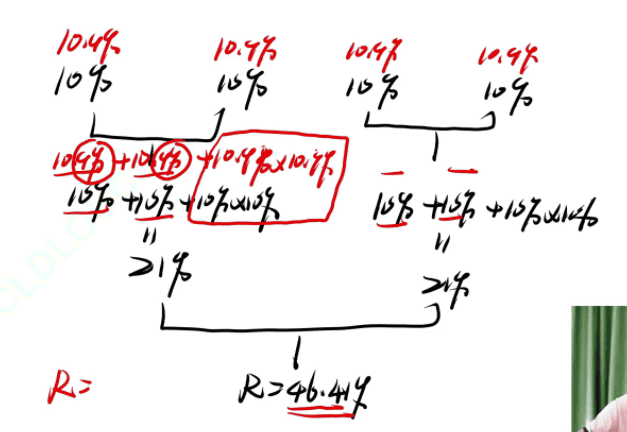 10.4% 10.4% 10.4% 10.4%
10% 10% 10% 10%
10.4% + 10.4% + 10.4%×10.4%
10% + 10% + 10%×10% 10% + 10% + 10%×10%
= =
21% 21%
R= R=46.41%